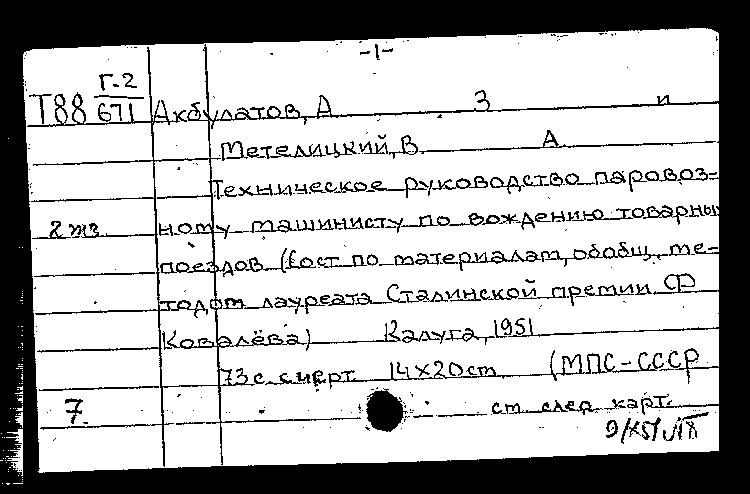 -1-
Г.2
Т88 671 Акбулатов, А З и
Метелицкий, В. А
Техническое руководство паровоз=
2 экз ному машинисту по вождению товарны
поездов (Сост по материалам, обобщ. ме-
тодом лауреата Сталинской премии Ф
Ковалёва) Калуга, 1951
73 с. с черт 14х20 см (МПС-СССР
7. см след карт.